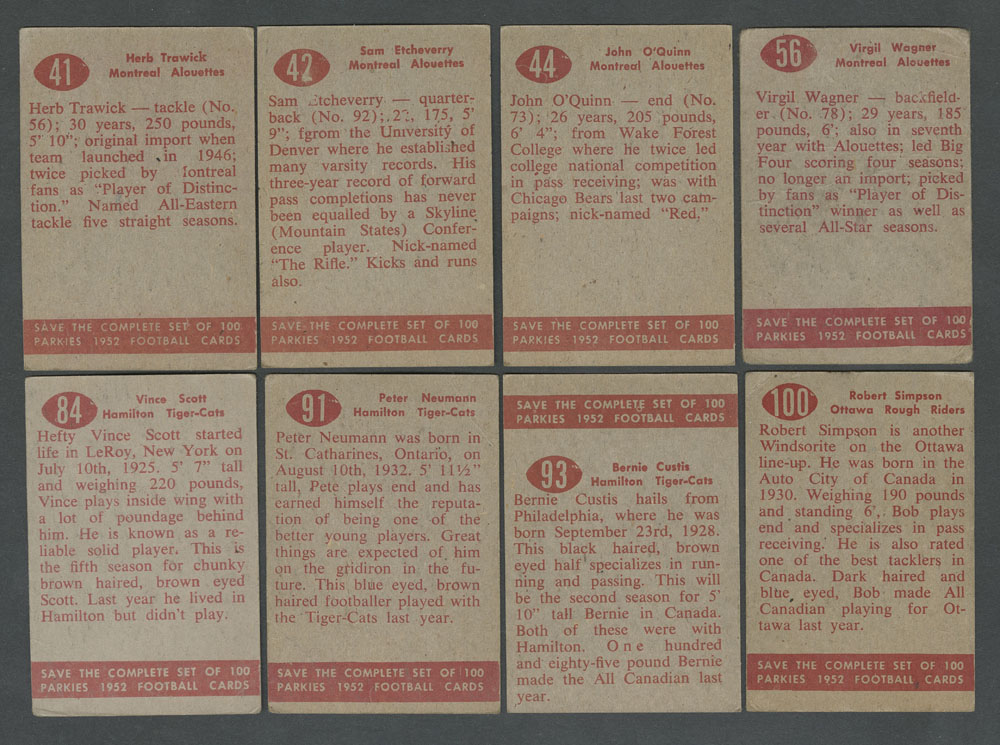 41
Herb Trawick
Montreal Alouettes
Herb Trawick — tackle (No.
56); 30 years, 250 pounds,
5' 10"; original import when
team launched in 1946;
twice picked by fontreal
fans as "Player of Distinc-
tion." Named All-Eastern
tackle five straight seasons.
SAVE THE COMPLETE SET OF 100
PARKIES 1952 FOOTBALL CARDS
42
Sam Etcheverry
Montreal Alouettes
Sam Etcheverry — quarter-
back (No. 92); 22, 175, 5'
9"; fgrom the University of
Denver where he established
many varsity records. His
three-year record of forward
pass completions has never
been equalled by a Skyline
(Mountain States) Confer-
ence player. Nick-named
"The Rifle." Kicks and runs
also.
SAVE THE COMPLETE SET OF 100
PARKIES 1952 FOOTBALL CARDS
44
John O'Quinn
Montreal Alouettes
John O'Quinn — end (No.
73); 26 years, 205 pounds,
6' 4"; from Wake Forest
College where he twice led
college national competition
in pass receiving; was with
Chicago Bears last two cam-
paigns; nick-named "Red,"
SAVE THE COMPLETE SET OF 100
PARKIES 1952 FOOTBALL CARDS
56
Virgil Wagner
Montreal Alouettes
Virgil Wagner — backfield-
er (No. 78); 29 years, 185
pounds, 6'; also in seventh
year with Alouettes; led Big
Four scoring four seasons;
no longer an import; picked
by fans as "Player of Dis-
tinction" winner as well as
several All-Star seasons.
SAVE THE COMPLETE SET OF 100
PARKIES 1952 FOOTBALL CARDS
84
Vince Scott
Hamilton Tiger-Cats
Hefty Vince Scott started
life in LeRoy, New York on
July 10th, 1925. 5' 7" tall
and weighing 220 pounds,
Vince plays inside wing with
a lot of poundage behind
him. He is known as a re-
liable solid player. This is
the fifth season for chunky
brown haired, brown eyed
Scott. Last year he lived in
Hamilton but didn't play.
SAVE THE COMPLETE SET OF 100
PARKIES 1952 FOOTBALL CARDS
91
Peter Neumann
Hamilton Tiger-Cats
Peter Neumann was born in
St. Catharines, Ontario, on
August 10th, 1932. 5' 11½"
tall, Pete plays end and has
earned himself the reputa-
tion of being one of the
better young players. Great
things are expected of him
on the gridiron in the fu-
ture. This blue eyed, brown
haired footballer played with
the Tiger-Cats last year.
SAVE THE COMPLETE SET OF 100
PARKIES 1952 FOOTBALL CARDS
SAVE THE COMPLETE SET OF 100
PARKIES 1952 FOOTBALL CARDS
93
Bernie Custis
Hamilton Tiger-Cats
Bernie Custis hails from
Philadelphia, where he was
born September 23rd, 1928.
This black haired, brown
eyed half specializes in run-
ning and passing. This will
be the second season for 5'
10" tall Bernie in Canada.
Both of these were with
Hamilton. One hundred
and eighty-five pound Bernie
made the All Canadian last
year.
100
Robert Simpson
Ottawa Rough Riders
Robert Simpson is another
Windsorite on the Ottawa
line-up. He was born in the
Auto City of Canada in
1930. Weighing 190 pounds
and standing 6', Bob plays
end and specializes in pass
receiving. He is also rated
one of the best tacklers in
Canada. Dark haired and
blue eyed, Bob made All
Canadian playing for Ot-
tawa last year.
SAVE THE COMPLETE SET OF 100
PARKIES 1952 FOOTBALL CARDS